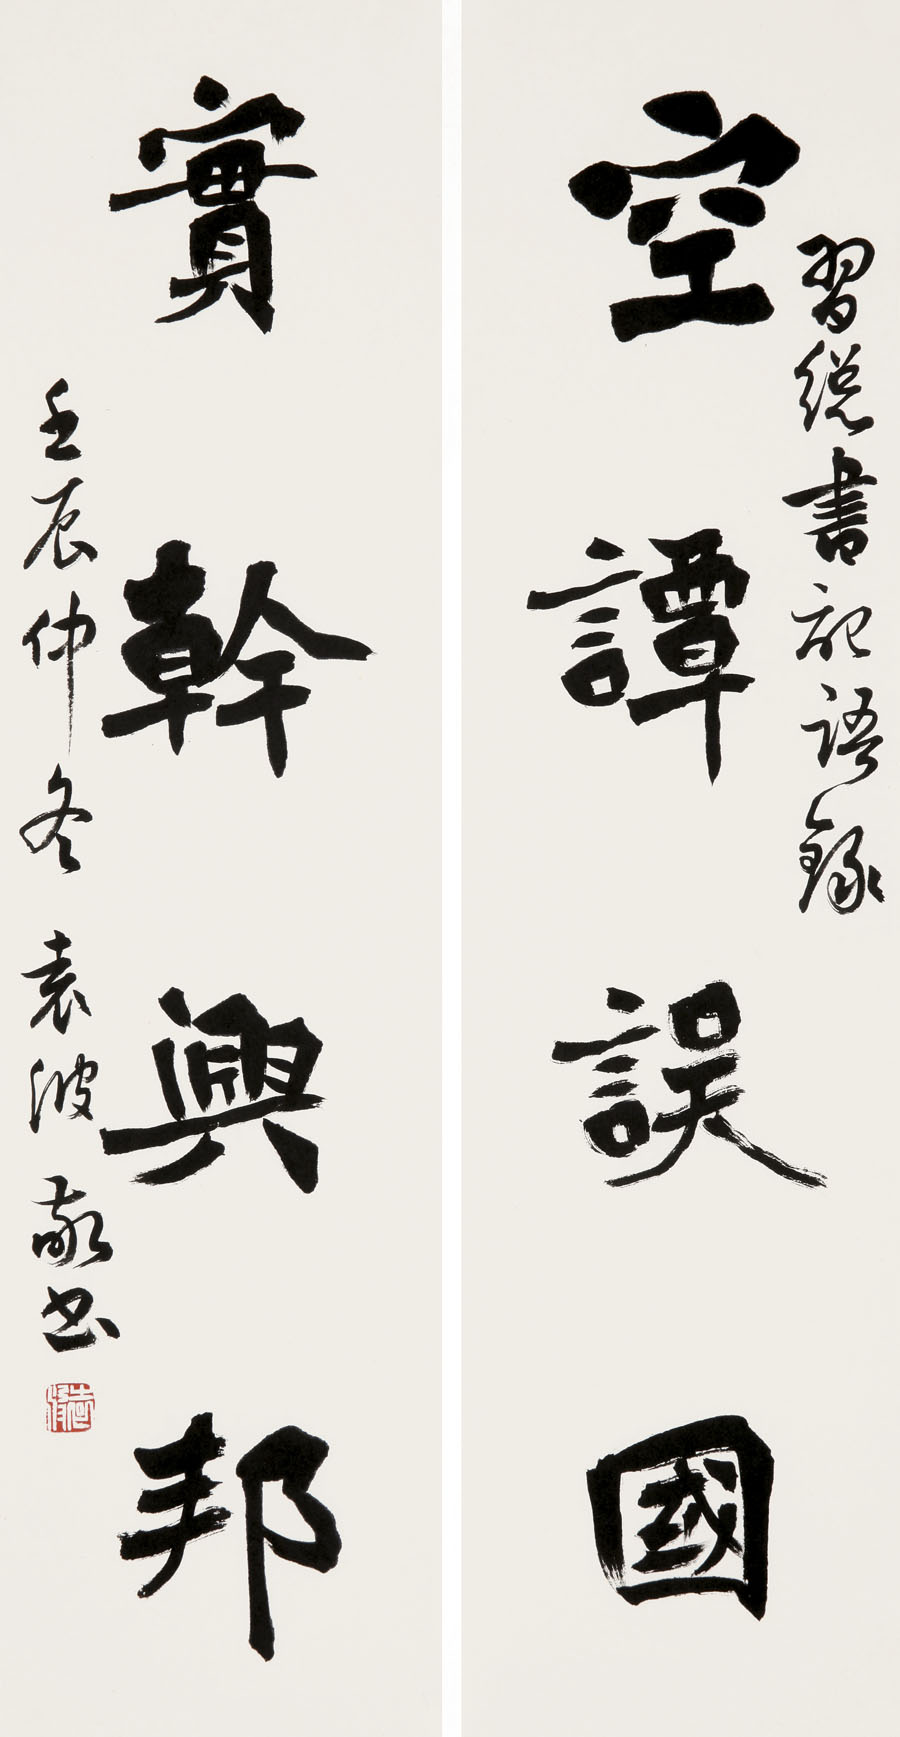 習總書記語錄
空譚誤國
實幹興邦
壬辰仲冬 袁波敬书